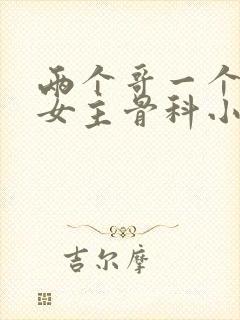 两个哥一个
女主骨科小
吉尔摩